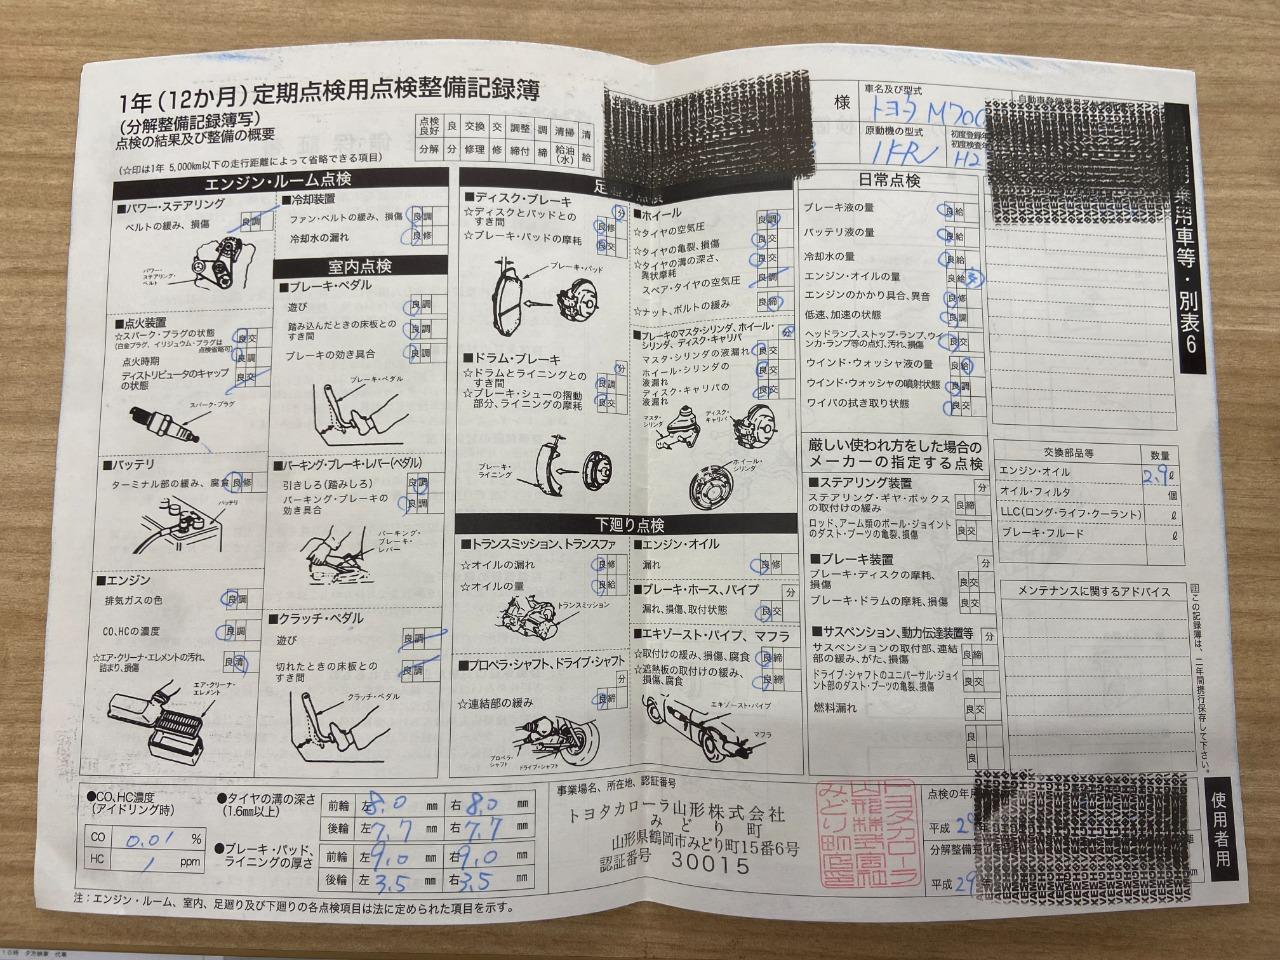 1年(12か月)定期点検用点検整備記録簿
(分解整備記録簿写)
点検の結果及び整備の概要
(☆印は1年 5,000km以下の走行距離によって省略できる項目)
点検良好 良 交換 交 調整 調 清掃 清
分解 分 修理 修 締付 締 給油(水) 給
様
車名及び型式
トヨタ M700
原動機の型式
1KR
初度登録年
初度検査年
H2
乗用車等・別表6
エンジン・ルーム点検
■パワー・ステアリング
ベルトの緩み、損傷 良 調
パワー・ステアリング・ベルト
■点火装置
☆スパーク・プラグの状態 良 交
(白金プラグ、イリジュウム・プラグは点検省略可)
点火時期 良 調
ディストリビュータのキャップの状態 良 交
スパーク・プラグ
■バッテリ
ターミナル部の緩み、腐食 良 修
バッテリ
■エンジン
排気ガスの色 良 調
CO、HCの濃度 良 調
☆エア・クリーナ・エレメントの汚れ、詰まり、損傷 良 清
エア・クリーナ・エレメント
■冷却装置
ファン・ベルトの緩み、損傷 良 調
冷却水の漏れ 良 修
室内点検
■ブレーキ・ペダル
遊び 良 調
踏み込んだときの床板とのすき間 良 調
ブレーキの効き具合 良 調
ブレーキ・ペダル
■パーキング・ブレーキ・レバー(ペダル)
引きしろ(踏みしろ) 良 調
パーキング・ブレーキの効き具合 良 調
パーキング・ブレーキ・レバー
■クラッチ・ペダル
遊び 良 調
切れたときの床板とのすき間 良 調
クラッチ・ペダル
足
点検
■ディスク・ブレーキ
分
☆ディスクとパッドとのすき間 良 修
☆ブレーキ・パッドの摩耗 良 交
ブレーキ・パッド
■ドラム・ブレーキ
分
☆ドラムとライニングとのすき間 良 調
☆ブレーキ・シューの摺動部分、ライニングの摩耗 良 交
ブレーキ・ライニング
■ホイール
☆タイヤの空気圧 良 調
☆タイヤの亀裂、損傷 良 交
☆タイヤの溝の深さ、異状摩耗 良 交
スペア・タイヤの空気圧 良 調
☆ナット、ボルトの緩み 良 締
■ブレーキのマスタ・シリンダ、ホイール・シリンダ、ディスク・キャリパ 分
マスタ・シリンダの液漏れ 良 交
ホイール・シリンダの液漏れ 良 交
ディスク・キャリパの液漏れ 良 交
マスタ・シリンダ
ディスク・キャリパ
ホイール・シリンダ
下廻り点検
■トランスミッション、トランスファ
☆オイルの漏れ 良 修
☆オイルの量 良 給
トランスミッション
■プロペラ・シャフト、ドライブ・シャフト
分
☆連結部の緩み 良 締
プロペラ・シャフト
ドライブ・シャフト
■エンジン・オイル
漏れ 良 修
■ブレーキ・ホース、パイプ 分
漏れ、損傷、取付状態 良 交
■エキゾースト・パイプ、マフラ
☆取付けの緩み、損傷、腐食 良 締
☆遮熱板の取付けの緩み、損傷、腐食 良 締
エキゾースト・パイプ
マフラ
日常点検
ブレーキ液の量 良 給
バッテリ液の量 良 給
冷却水の量 良 給
エンジン・オイルの量 良 給 交
エンジンのかかり具合、異音 良 修
低速、加速の状態 良 調
ヘッドランプ、ストップ・ランプ、ウインカ・ランプ等の点灯、汚れ、損傷 良 交
ウインド・ウォッシャ液の量 良 給
ウインド・ウォッシャの噴射状態 良 調
ワイパの拭き取り状態 良 交
厳しい使われ方をした場合のメーカーの指定する点検
■ステアリング装置 分
ステアリング・ギヤ・ボックスの取付けの緩み 良 締
ロッド、アーム類のボール・ジョイントのダスト・ブーツの亀裂、損傷 良 交
■ブレーキ装置 分
ブレーキ・ディスクの摩耗、損傷 良 交
ブレーキ・ドラムの摩耗、損傷 良 交
■サスペンション、動力伝達装置等 分
サスペンションの取付部、連結部の緩み、がた、損傷 良 締
ドライブ・シャフトのユニバーサル・ジョイント部のダスト・ブーツの亀裂、損傷 良 交
燃料漏れ 良 交
良
良
交換部品等 数量
エンジン・オイル 2.9 ℓ
オイル・フィルタ 個
LLC(ロング・ライフ・クーラント) ℓ
ブレーキ・フルード ℓ
メンテナンスに関するアドバイス
注 この記録簿は、二年間携行保存して下さい。
使用者用
●CO、HC濃度
(アイドリング時)
CO 0.01 %
HC 1 ppm
●タイヤの溝の深さ
(1.6mm以上)
前輪 左 8.0 mm 右 8.0 mm
後輪 左 7.7 mm 右 7.7 mm
●ブレーキ・パッド、ライニングの厚さ
前輪 左 9.0 mm 右 9.0 mm
後輪 左 3.5 mm 右 3.5 mm
事業場名、所在地、認証番号
トヨタカローラ山形株式会社
みどり町
山形県鶴岡市みどり町15番6号
認証番号 30015
トヨタカローラ
山形株式会社
みどり町店
点検の年月
平成 29
分解整備完
平成 29年
km
注：エンジン・ルーム、室内、足廻り及び下廻りの各点検項目は法に定められた項目を示す。